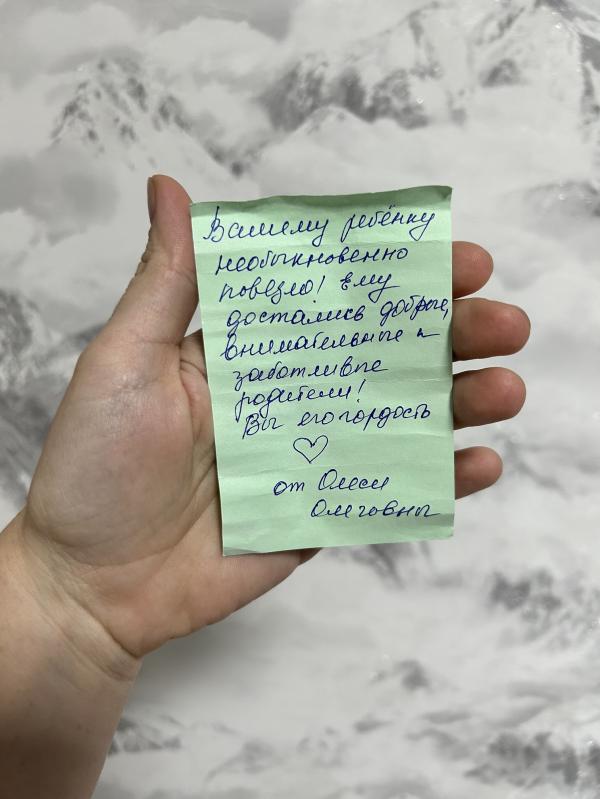 Вашему ребёнку
необыкновенно
повезло! Ему
достались добрые,
внимательные и
заботливые
родители!
Вы его гордость
♡
от Олеси
Олеговны